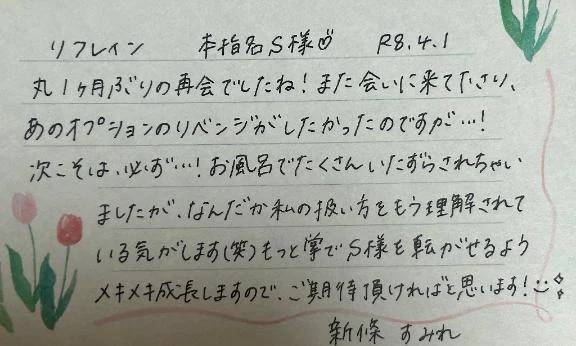 リフレイン 本指名S様♡ R8.4.1
丸1ヶ月ぶりの再会でしたね!また会いに来て下さり、
あのオプションのリベンジがしたかったのですが…!
次こそは、必ず…!お風呂でたくさんいたずらされちゃい
ましたが、なんだか私の扱い方をもう理解されて
いる気がします(笑)もっと掌でS様を転がせるよう
メキメキ成長しますので、ご期待頂ければと思います!
新條 すみれ